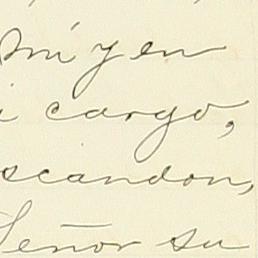 mí y en
i cargo,
scandon,
Señor su